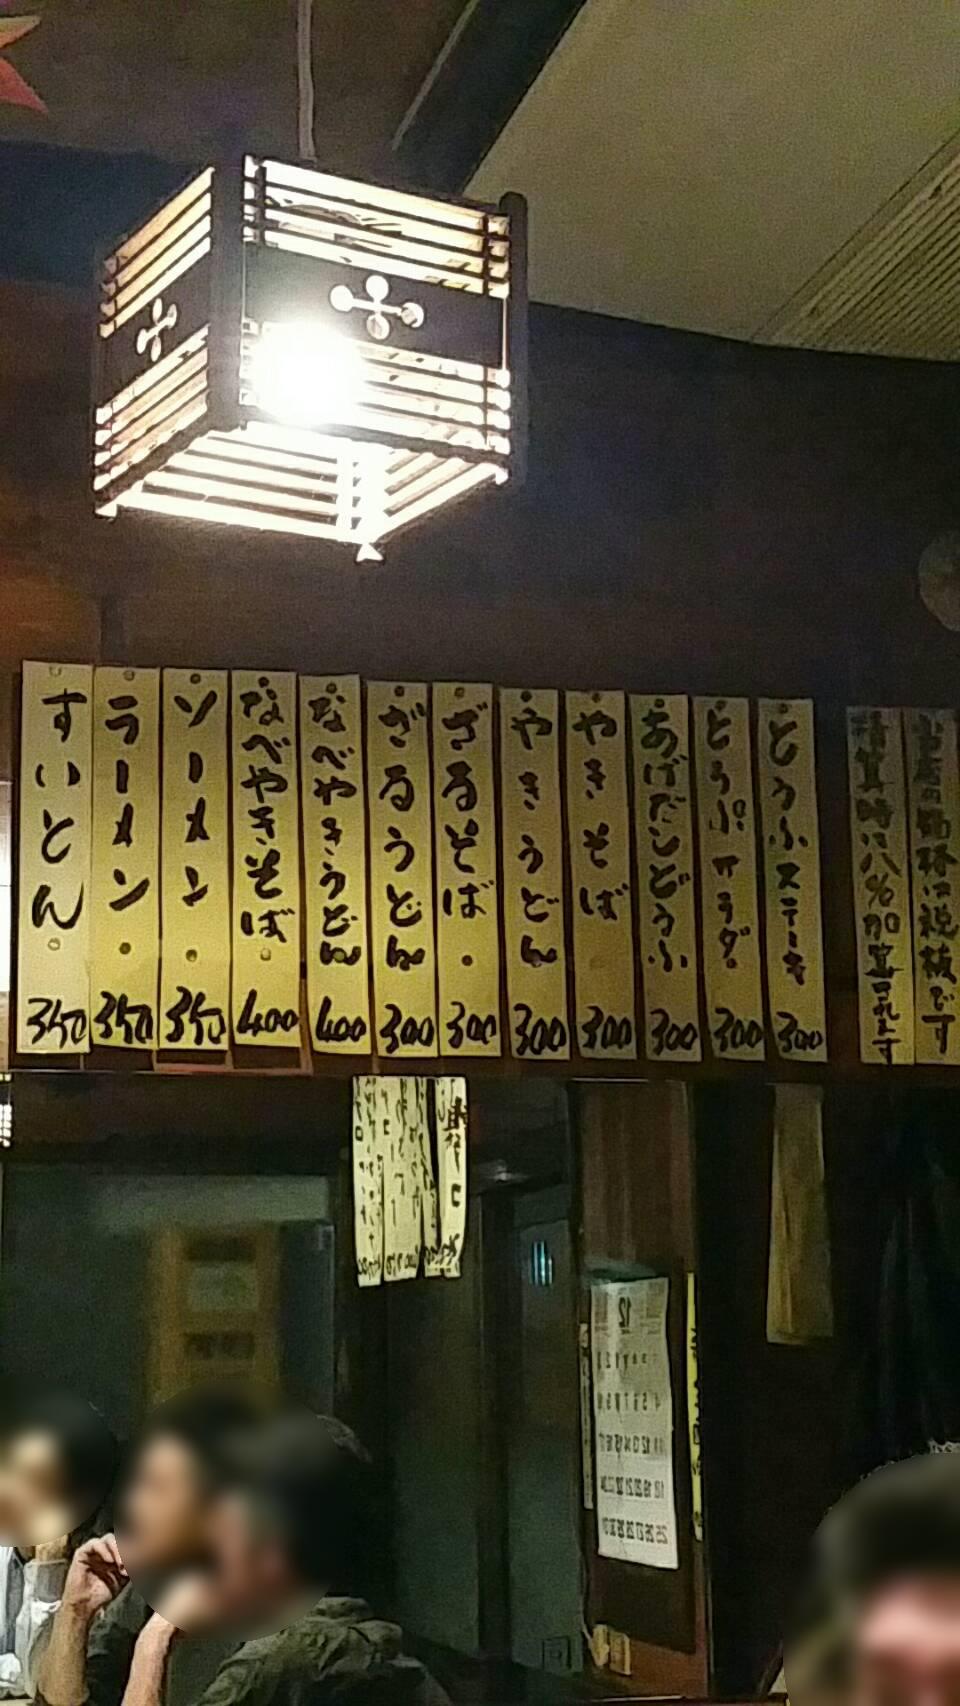 当店の価格は税抜です
精算時に八%加算されます
とうふステーキ 300
とうふサラダ 300
あげだしどうふ 300
やきそば 300
やきうどん 300
ざるそば 300
ざるうどん 300
なべやきうどん 400
なべやきそば 400
ソーメン 350
ラーメン 350
すいとん 350
12